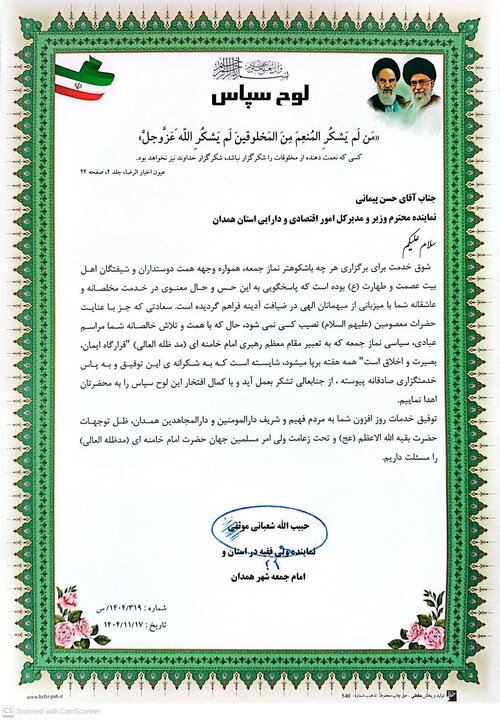 بسم الله الرحمن الرحیم
لوح سپاس
«مَن لَم یَشکُرِ المُنعِمَ مِنَ المَخلوقینَ لَم یَشکُرِ اللّهَ عَزَّوجلَّ»
کسی که نعمت دهنده از مخلوقات را شکرگزار نباشد، شکرگزار خداوند نیز نخواهد بود.
عیون اخبار الرضا، جلد ۲، صفحه ۲۴
جناب آقای حسن پیمانی
نماینده محترم وزیر و مدیرکل امور اقتصادی و دارایی استان همدان
سلام علیکم
شوق خدمت برای برگزاری هر چه باشکوهتر نماز جمعه، همواره وجهه همت دوستداران و شیفتگان اهل
بیت عصمت و طهارت (ع) بوده است که پاسخگویی به این حس و حال معنوی در خدمت مخلصانه و
عاشقانه شما با میزبانی از میهمانان الهی در ضیافت آدینه فراهم گردیده است. سعادتی که جز با عنایت
حضرات معصومین (علیهم السلام) نصیب کسی نمی شود، حال که با همت و تلاش خالصانه شما مراسم
عبادی، سیاسی نماز جمعه که به تعبیر مقام معظم رهبری امام خامنه ای (مد ظله العالی) "قرارگاه ایمان،
بصیرت و اخلاق است" همه هفته برپا میشود، شایسته است که به شکرانه ی این توفیق و به پاس
خدمتگزاری صادقانه پیوسته ، از جنابعالی تشکر بعمل آید و با کمال افتخار این لوح سپاس را به محضرتان
اهدا نماییم.
توفیق خدمات روز افزون شما به مردم فهیم و شریف دارالمومنین و دارالمجاهدین همدان، ظل توجهات
حضرت بقیه الله الاعظم (عج) و تحت زعامت ولی امر مسلمین جهان حضرت امام خامنه ای (مدظله العالی)
را مسئلت داریم.
حبیب الله شعبانی موثقی
نماینده ولی فقیه در استان و
امام جمعه شهر همدان
شماره : ۱۴۰۴/۳۱۹/ س
تاریخ : ۱۴۰۴/۱۱/۱۷
www.hefzi-pub.ir
تولید و پخش حفظی . حق چاپ محفوظ. تذهیب شماره : 540
CS Scanned with CamScanner